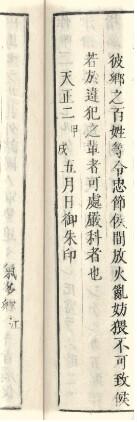 彼鄉之百姓等令忠節候間放火亂妨猥不可致候
若於違犯之輩者可處嚴科者也
天正二甲戌五月日御朱印